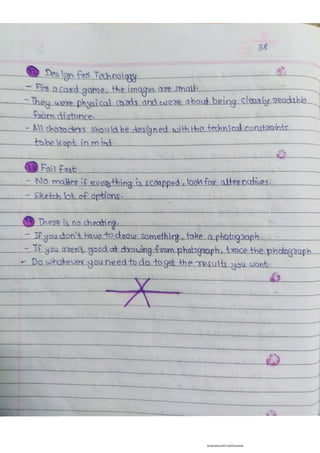 38
Design for Technology
- For a card game, the images are small.
- They were physical cards and were about being clearly readable
from distance.
- All characters should be designed with the technical constraints
to be kept in mind.
Fail Fast
- No matter if everything is scrapped, look for alternatives.
- Sketch lot of options.
There is no cheating.
- If you don't have to draw something, take a photograph
- If you aren't good at drawing from photograph, trace the photograph
- Do whatever you need to do to get the results you want.
Scanned with CamScanner